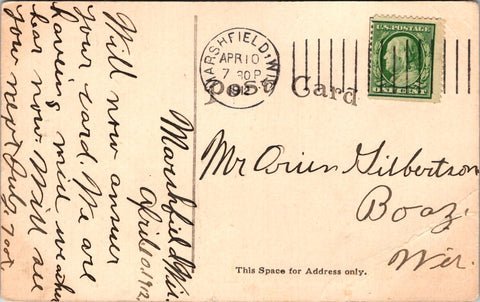 MARSHFIELD, WIS.
APR 10
7 30 P
1912
Post Card
U.S. POSTAGE
ONE CENT
Marshfield, Wis.
April 10, 1912.
Will now answer
your card. We are
having mild weather
here now. Will see
you next July,
Mr Orien Gilbertson
Boaz.
Wis.
This Space for Address only.